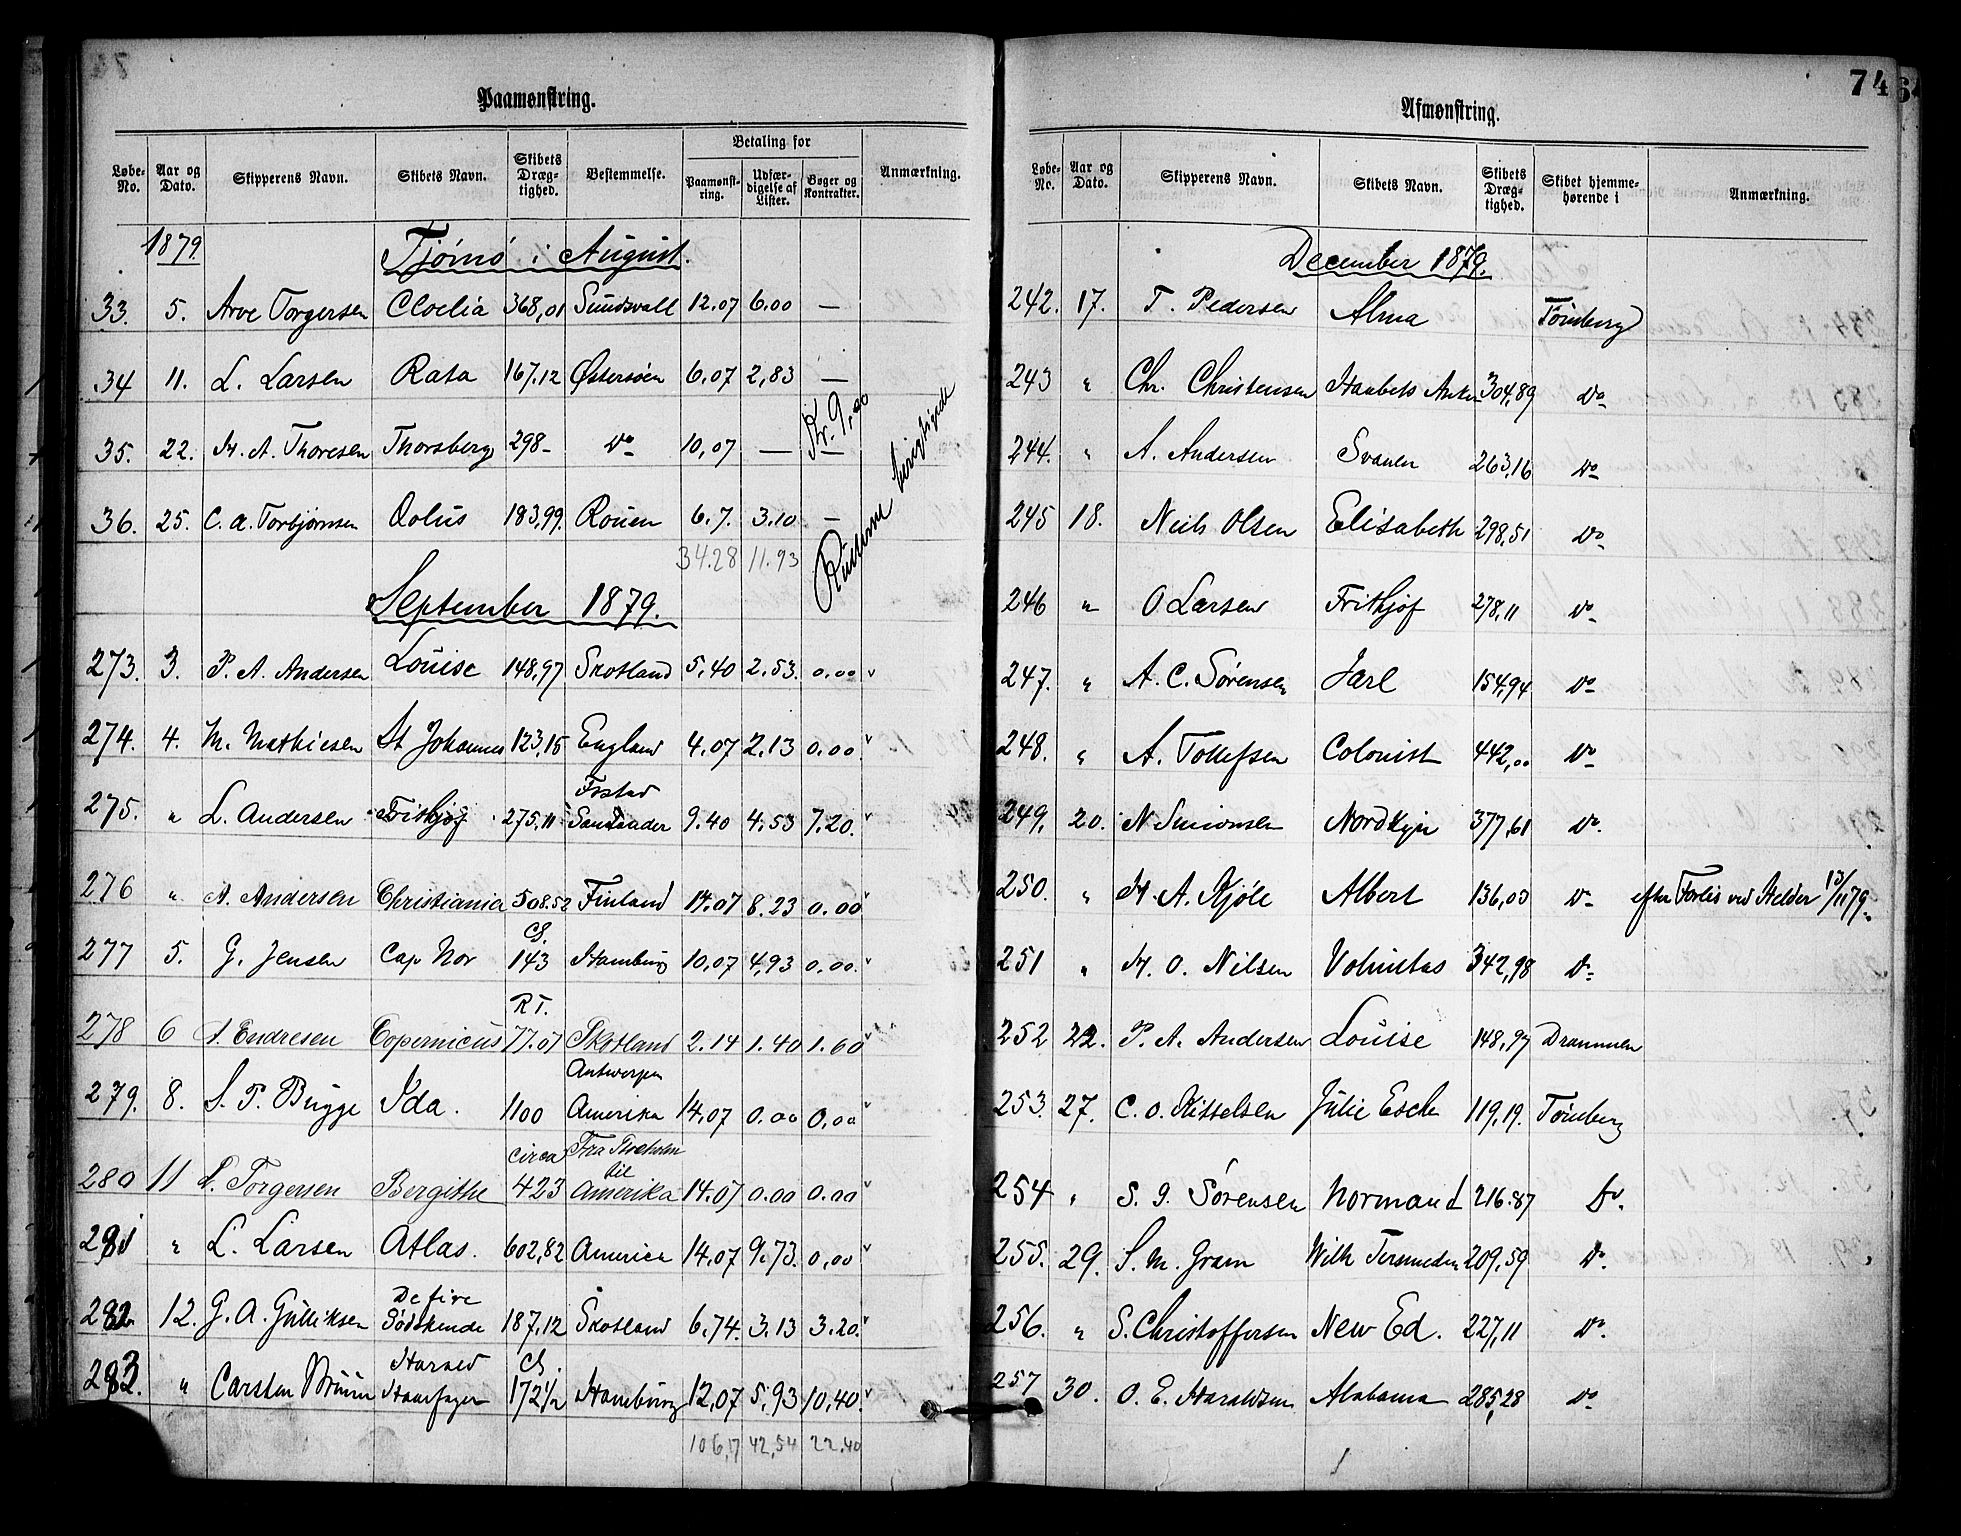 Paamønstring.
Løbe-No. Aar og Dato. Skipperens Navn. Skibets Navn. Skibets Dræg-tighed. Bestemmelse. Betaling for Paamønst-ring. Udfær-digelse af Lister. Bøger og Kontrakter. Anmærkning.
1879 Tjømø i August.
33. 5. Arve Torgersen Cloelia 368,01 Sundsvall 12.07 6.00 —
34 11. L. Larsen Rata 167.12 Østersøen 6.07 2,83 —
35. 22. H. A. Thoresen Thorsberg 298- Do 10,07 — —
Kr. 9,00
36. 25. C. A. Torbjørnsen Æolus 183,99. Rouen 6.7. 3.10 —
34.28 11.93
September 1879.
273. 3. P. A. Andersen Louise 148,97 Skotland 5,40 2.53. 0.00 v
274. 4. M. Mathiesen St Johannes 123,15 England 4.07 2.13 0.00 v
275. " L. Andersen Frithjof 275,11 Santander 9.40 4,53 7.20. v
276 " A. Andersen Christiania 508.52 Finland 14.07 8.23 0.00 v
277 5. G. Jensen Cap Nor Cl. 143 Hamburg 10,07 4,93 0.00. v
278 6 A. Endresen Copernicus RT. 77.07 Skotland 2.14 1.40 1.60 v
279. 8. S. P. Bugge Ida. 1100 Antwerpen Amerika 14,07 0.00 0,00 v
280 11 L. Torgersen Bergithe circa 423 Fra til Amerika 14.07 0.00 0.00 v
281 " L. Larsen Atlas. 602,82 America 14,07 9.73. 0,00 v
282 12. G. A. Gulliksen De fire Södskende 187,12 Skotland 6.74. 3.13 3.20. v
283. " Carsten Bruun Harald Haarfager Cl. 172½ Hamburg 12,07 5,93 10,40. v
106,17 42,54 22.40
74
Afmønstring.
Løbe-No. Aar og Dato. Skipperens Navn. Skibets Navn. Skibets Dræg-tighed. Skibet hjemme-hørende i Anmærkning.
December 1879.
242. 17. T. Pedersen Alma Tønsberg
243 " Chr. Christensen Haabets Anker 304,89 Do
244. " A. Andersen Svanen 263,16 Do
245 18. Niels Olsen Elisabeth 298,51 Do
246 " O Larsen Frithjof 278,11 Do
247. " A. C. Sørensen Jarl 154,94 Do
248. " A. Tollefsen Colonist 442,00 Do
249. 20. N Simonsen Nordkyn 377,61 Do.
250. " H. A. Kjøle Albert 136,03 Do efter Forlis ved Helder 13/11 79.
251 " H. O. Nilsen Voluntas 342,98 Do
252 22. P. A. Andersen Louise 148,97 Drammen
253. 27. C. O. Kittelsen Julie Esch 119,19. Tønsberg
254 " S. J. Sørensen Normand 216.87 Do.
255. 29. S. M. Gram Wilh Tersmeden 209,59 Do.
256. " S. Christoffersen New Ed. 227,11 Do.
257 30. O. E. Haraldsen Alabama 285,28 Do